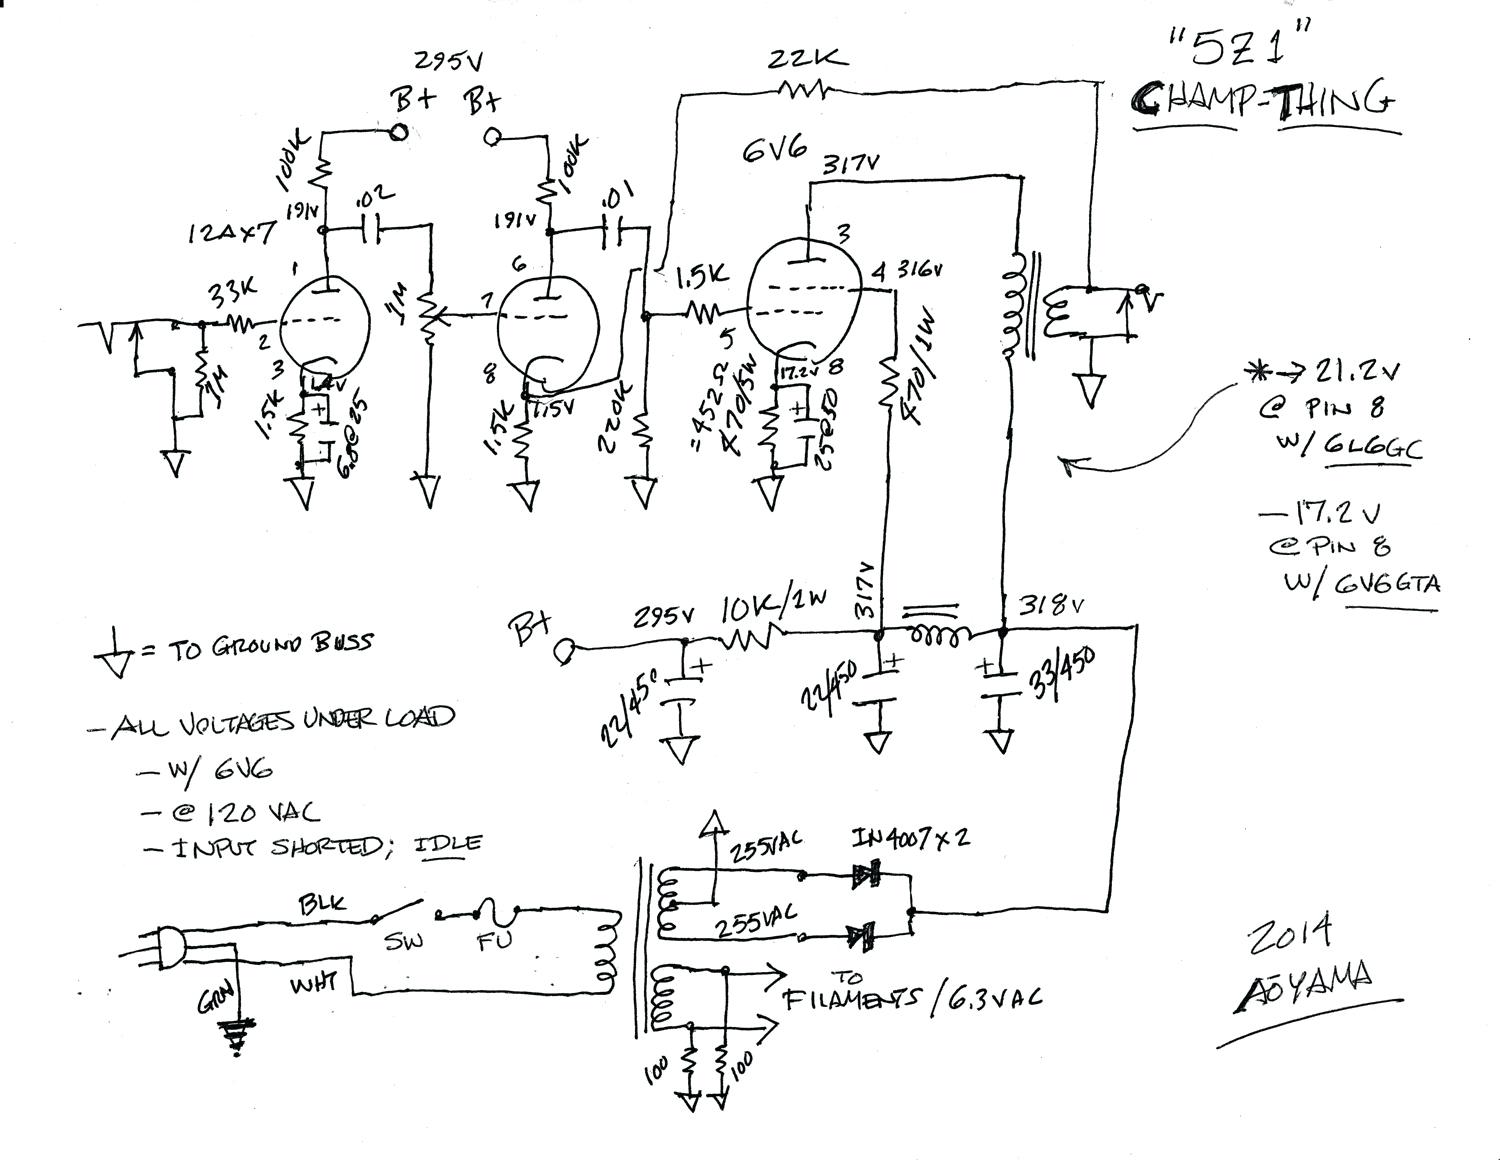 "5Z1"
CHAMP-THING
295V
B+ B+
22K
100K
100K
6V6
317V
191V
.02
191V
.01
12AX7
1
6
3
33K
7
1.5K
4 316V
1M
2
5
1M
3
8
17.2V 8
1.5V
1.5K
1.5K
220K
=452Ω
470/5W
25@50
470/1W
* → 21.2V
@ PIN 8
W/ 6L6GC
- 17.2V
@ PIN 8
W/ 6V6GTA
B+
295V
10K/1W
317V
318V
+
+
+
22/450
22/450
33/450
= TO GROUND BUSS
- ALL VOLTAGES UNDER LOAD
- W/ 6V6
- @ 120 VAC
- INPUT SHORTED; IDLE
255VAC
IN4007 X 2
255VAC
BLK
SW
FU
WHT
GRN
TO
FILAMENTS / 6.3VAC
100
100
2014
AOYAMA